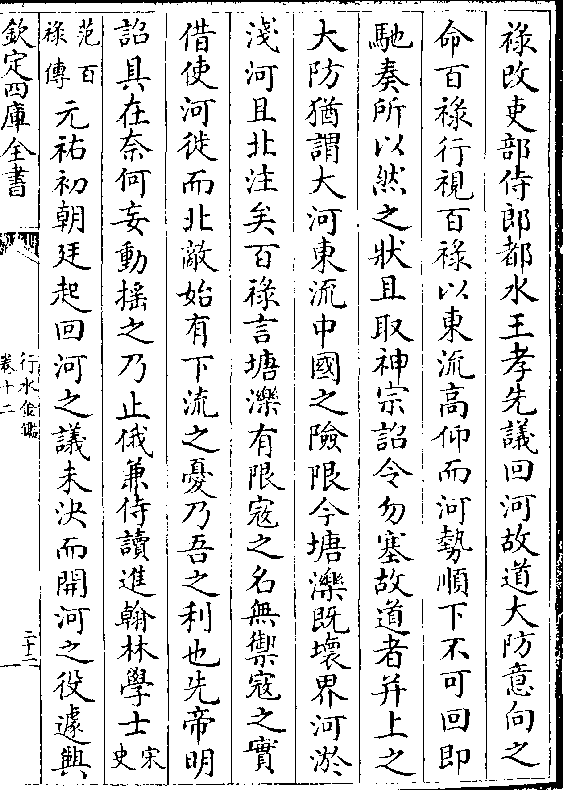 祿改吏部侍郎都水王孝先議回河故道大防意向之
命百祿行視百祿以東流高仰而河勢順下不可回即
馳奏所以然之狀且取神宗詔令勿塞故道者并上之
大防猶謂大河東流中國之險限今塘濼既壞界河淤
淺河且北注矣百祿言塘濼有限寇之名無禦寇之實
借使河徙而北敵始有下流之憂乃吾之利也先帝明
詔具在奈何妄動揺之乃止俄兼侍讀進翰林學士宋史
范百祿傳
元祐初朝廷起回河之議未決而開河之役遽興
欽定四庫全書
行水金鑑
卷十二
二十二